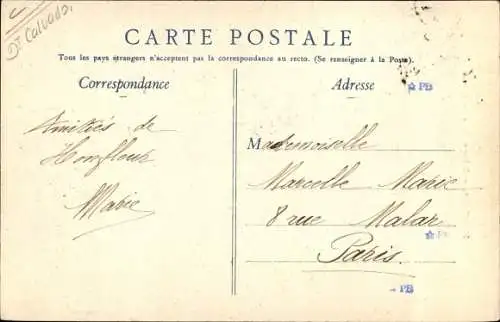 Dt Calvados
CARTE POSTALE
Tous les pays étrangers n'acceptent pas la correspondance au recto. (Se renseigner à la Poste).
Correspondance
Adresse
PB
Amitiés de
Honfleur
Marie
Mademoiselle
Marcelle Marie
8 rue Malar
PB
Paris.
PB